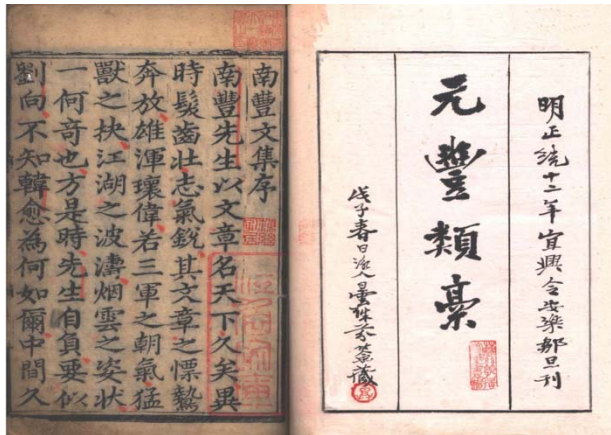 明正統十二年宜興令安樂鄒旦刊
元豐類稾
戊子春日
藏
南豐文集序
南豐先生以文章名天下久矣異
時髮齒壯志氣銳其文章之慓鷙
奔放雄渾瓌偉若三軍之朝氣猛
獸之抉江湖之波濤烟雲之姿狀
一何奇也方是時先生自負要似
劉向不知韓愈為何如爾中間久